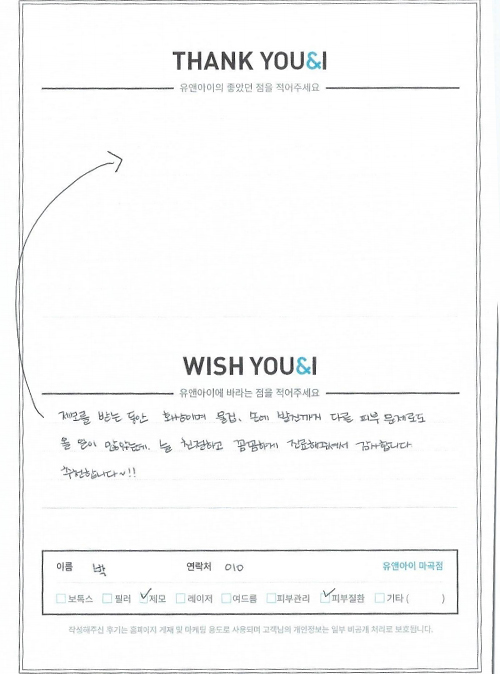 THANK YOU&I
유앤아이의 좋았던 점을 적어주세요
WISH YOU&I
유앤아이에 바라는 점을 적어주세요
제모를 받는 동안 화상이며 물집, 손에 발진까지 다른 피부 문제로도
올 일이 많았는데. 늘 친절하고 꼼꼼하게 진료해주셔서 감사합니다
추천합니다~!!
이름 박 연락처 010 유앤아이 마곡점
보톡스 필러 제모 레이저 여드름 피부관리 피부질환 기타 ( )
작성해주신 후기는 홈페이지 게재 및 마케팅 용도로 사용되며 고객님의 개인정보는 일부 비공개 처리로 보호됩니다.